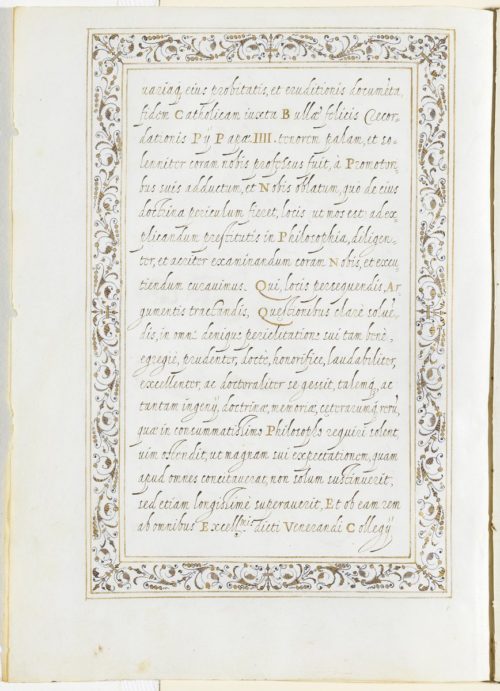 uariaq, eius probitatis, et eruditionis documēta,
fidem Catholicam iuxta Bullā felicis Recor-
dationis Pij Papæ IIII. tenorem palam, et so-
lenniter coram nobis professus fuit, à Promotori-
bus suis adductum, et Nobis oblatum, quo de eius
doctrina periculum fieret, locis ut mos est ad ex-
plicandum prestitutis in Philosophia, diligen-
ter, et acriter examinandum coram Nobis, et excu-
tiendum curauimus. Qui, locis persequendis, Ar
gumentis tractandis, Quęstionibus clarè solue̅-
dis, in omni denique periclitatione sui tam benè,
egregiè, prudenter, doctè, honorificè, laudabiliter,
excellenter, ac doctoraliter se gessit, talemq, ac
tantam ingenij, doctrinæ, memoriæ, cęterarumq, rerū,
quæ in consummatissimo Philosopho requiri solent,
uim ostendit, ut magnam sui expectationem, quam
apud omnes concitauerat, non solum sustinuerit,
sed etiam longissime superauerit, Et ob eam rem
ab omnibus Excellmis dicti Venerandi Collegij